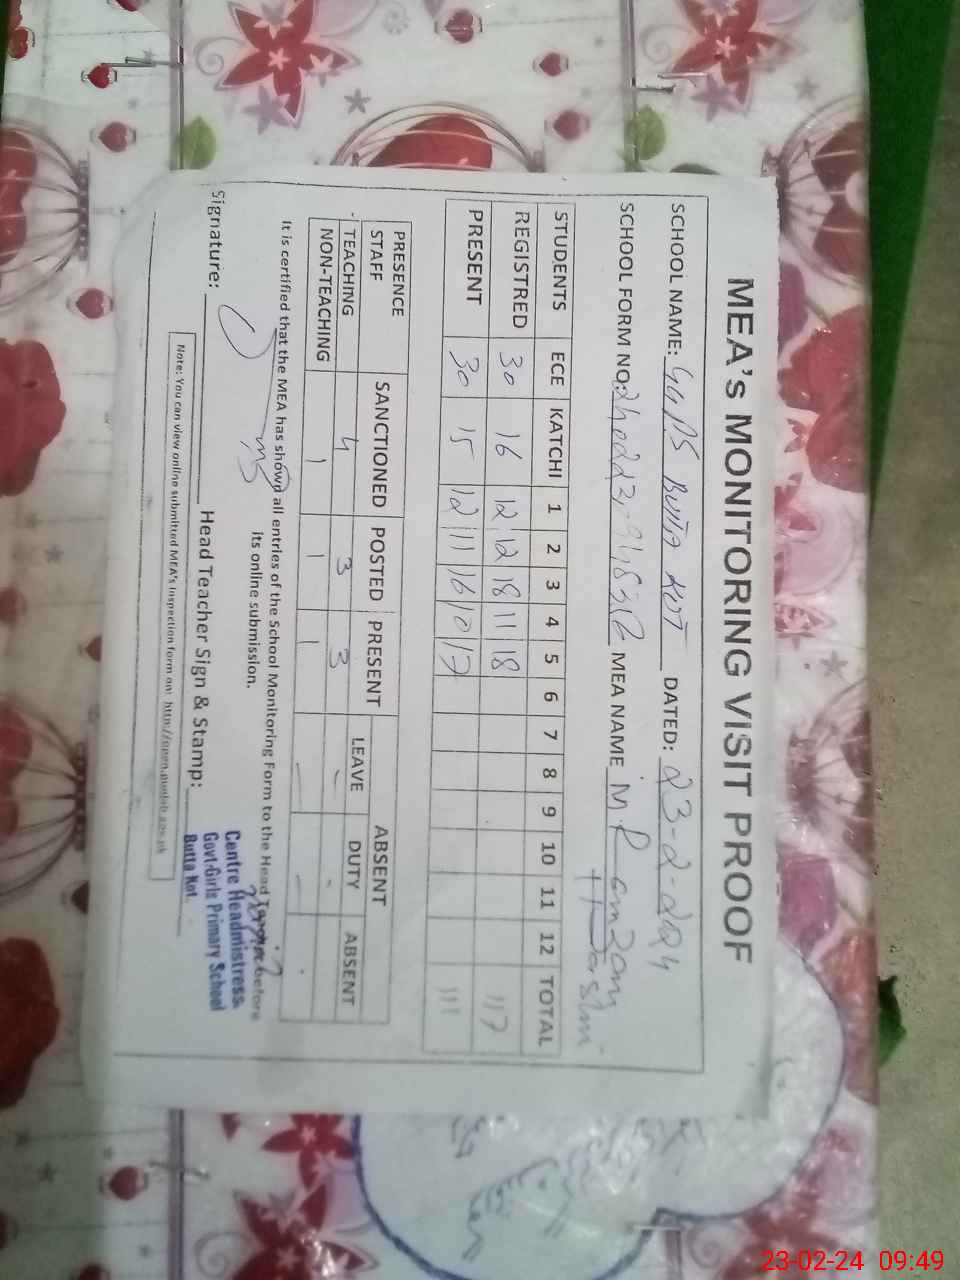 MEA's MONITORING VISIT PROOF
SCHOOL NAME: GGPS BUTTA KOT DATED: 23-2-2024
SCHOOL FORM NO: MEA NAME M. Ramzan
STUDENTS ECE KATCHI 1 2 3 4 5 6 7 8 9 10 11 12 TOTAL
REGISTRED 30 16 12 12 18 11 18 117
PRESENT 30 15 12 11 16 10 17 111
PRESENCE STAFF SANCTIONED POSTED PRESENT ABSENT
LEAVE DUTY ABSENT
TEACHING 4 3 3 - -
NON-TEACHING 1 1 1 - -
It is certified that the MEA has shown all entries of the School Monitoring Form to the Head before
its online submission.
Signature: Head Teacher Sign & Stamp:
Centre Headmistress.
Govt:Girls Primary School
Butta Kot.
Note: You can view online submitted MEA's inspection form on: http://open.punjab.gov.pk
23-02-24 09:49